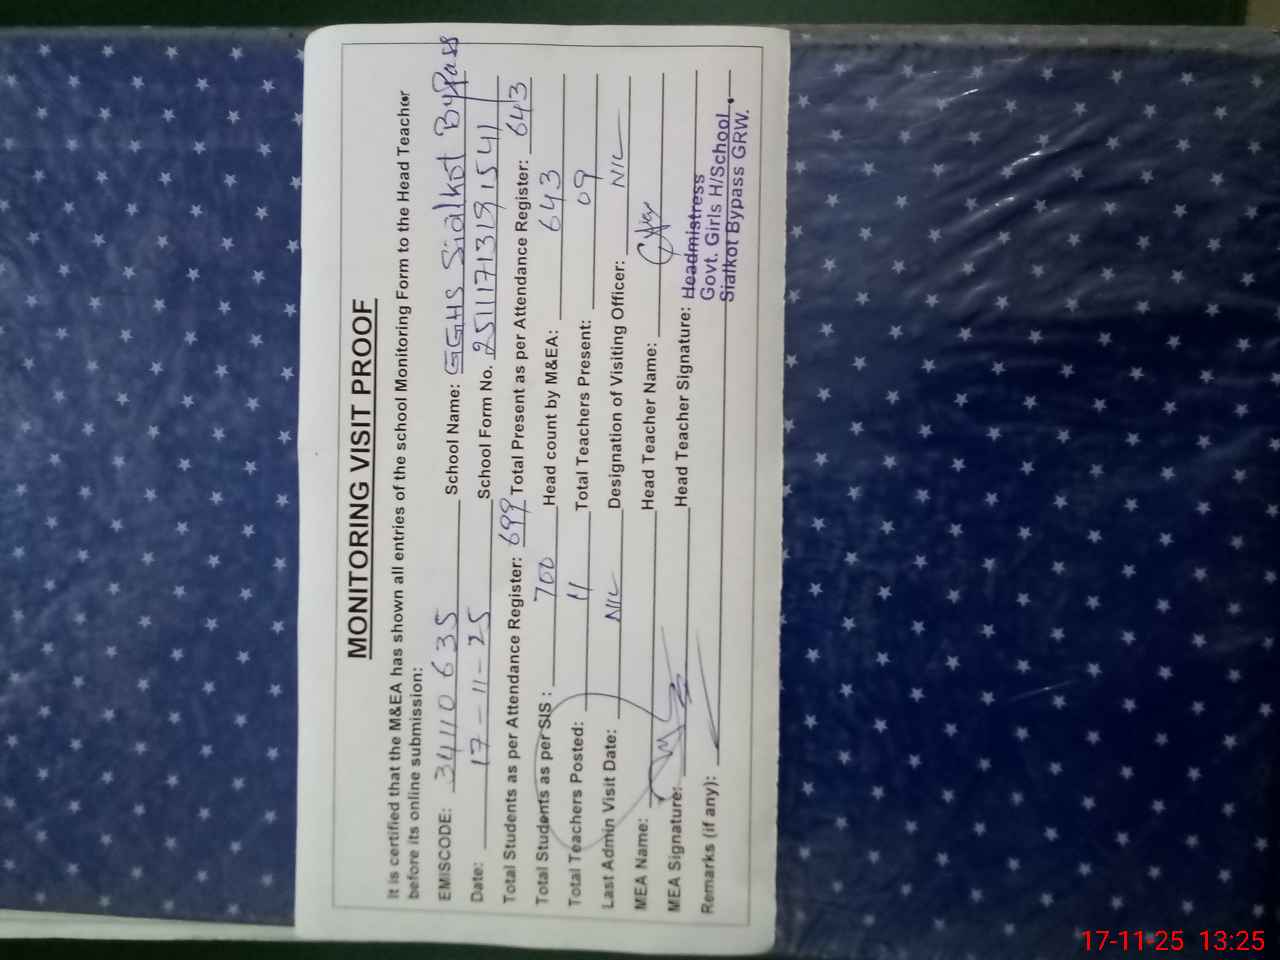 MONITORING VISIT PROOF
It is certified that the M&EA has shown all entries of the school Monitoring Form to the Head Teacher
before its online submission:
EMISCODE: 34110635 School Name: GGHS Sialkot Bypass
Date: 17-11-25 School Form No. 25111713191541
Total Students as per Attendance Register: 699 Total Present as per Attendance Register: 643
Total Students as per SIS : 700 Head count by M&EA: 643
Total Teachers Posted: 11 Total Teachers Present: 09
Last Admin Visit Date: NIL Designation of Visiting Officer: NIL
MEA Name: Head Teacher Name:
MEA Signature: Head Teacher Signature: Headmistress
Govt. Girls H/School
Remarks (if any): Sialkot Bypass GRW.
17-11-25 13:25